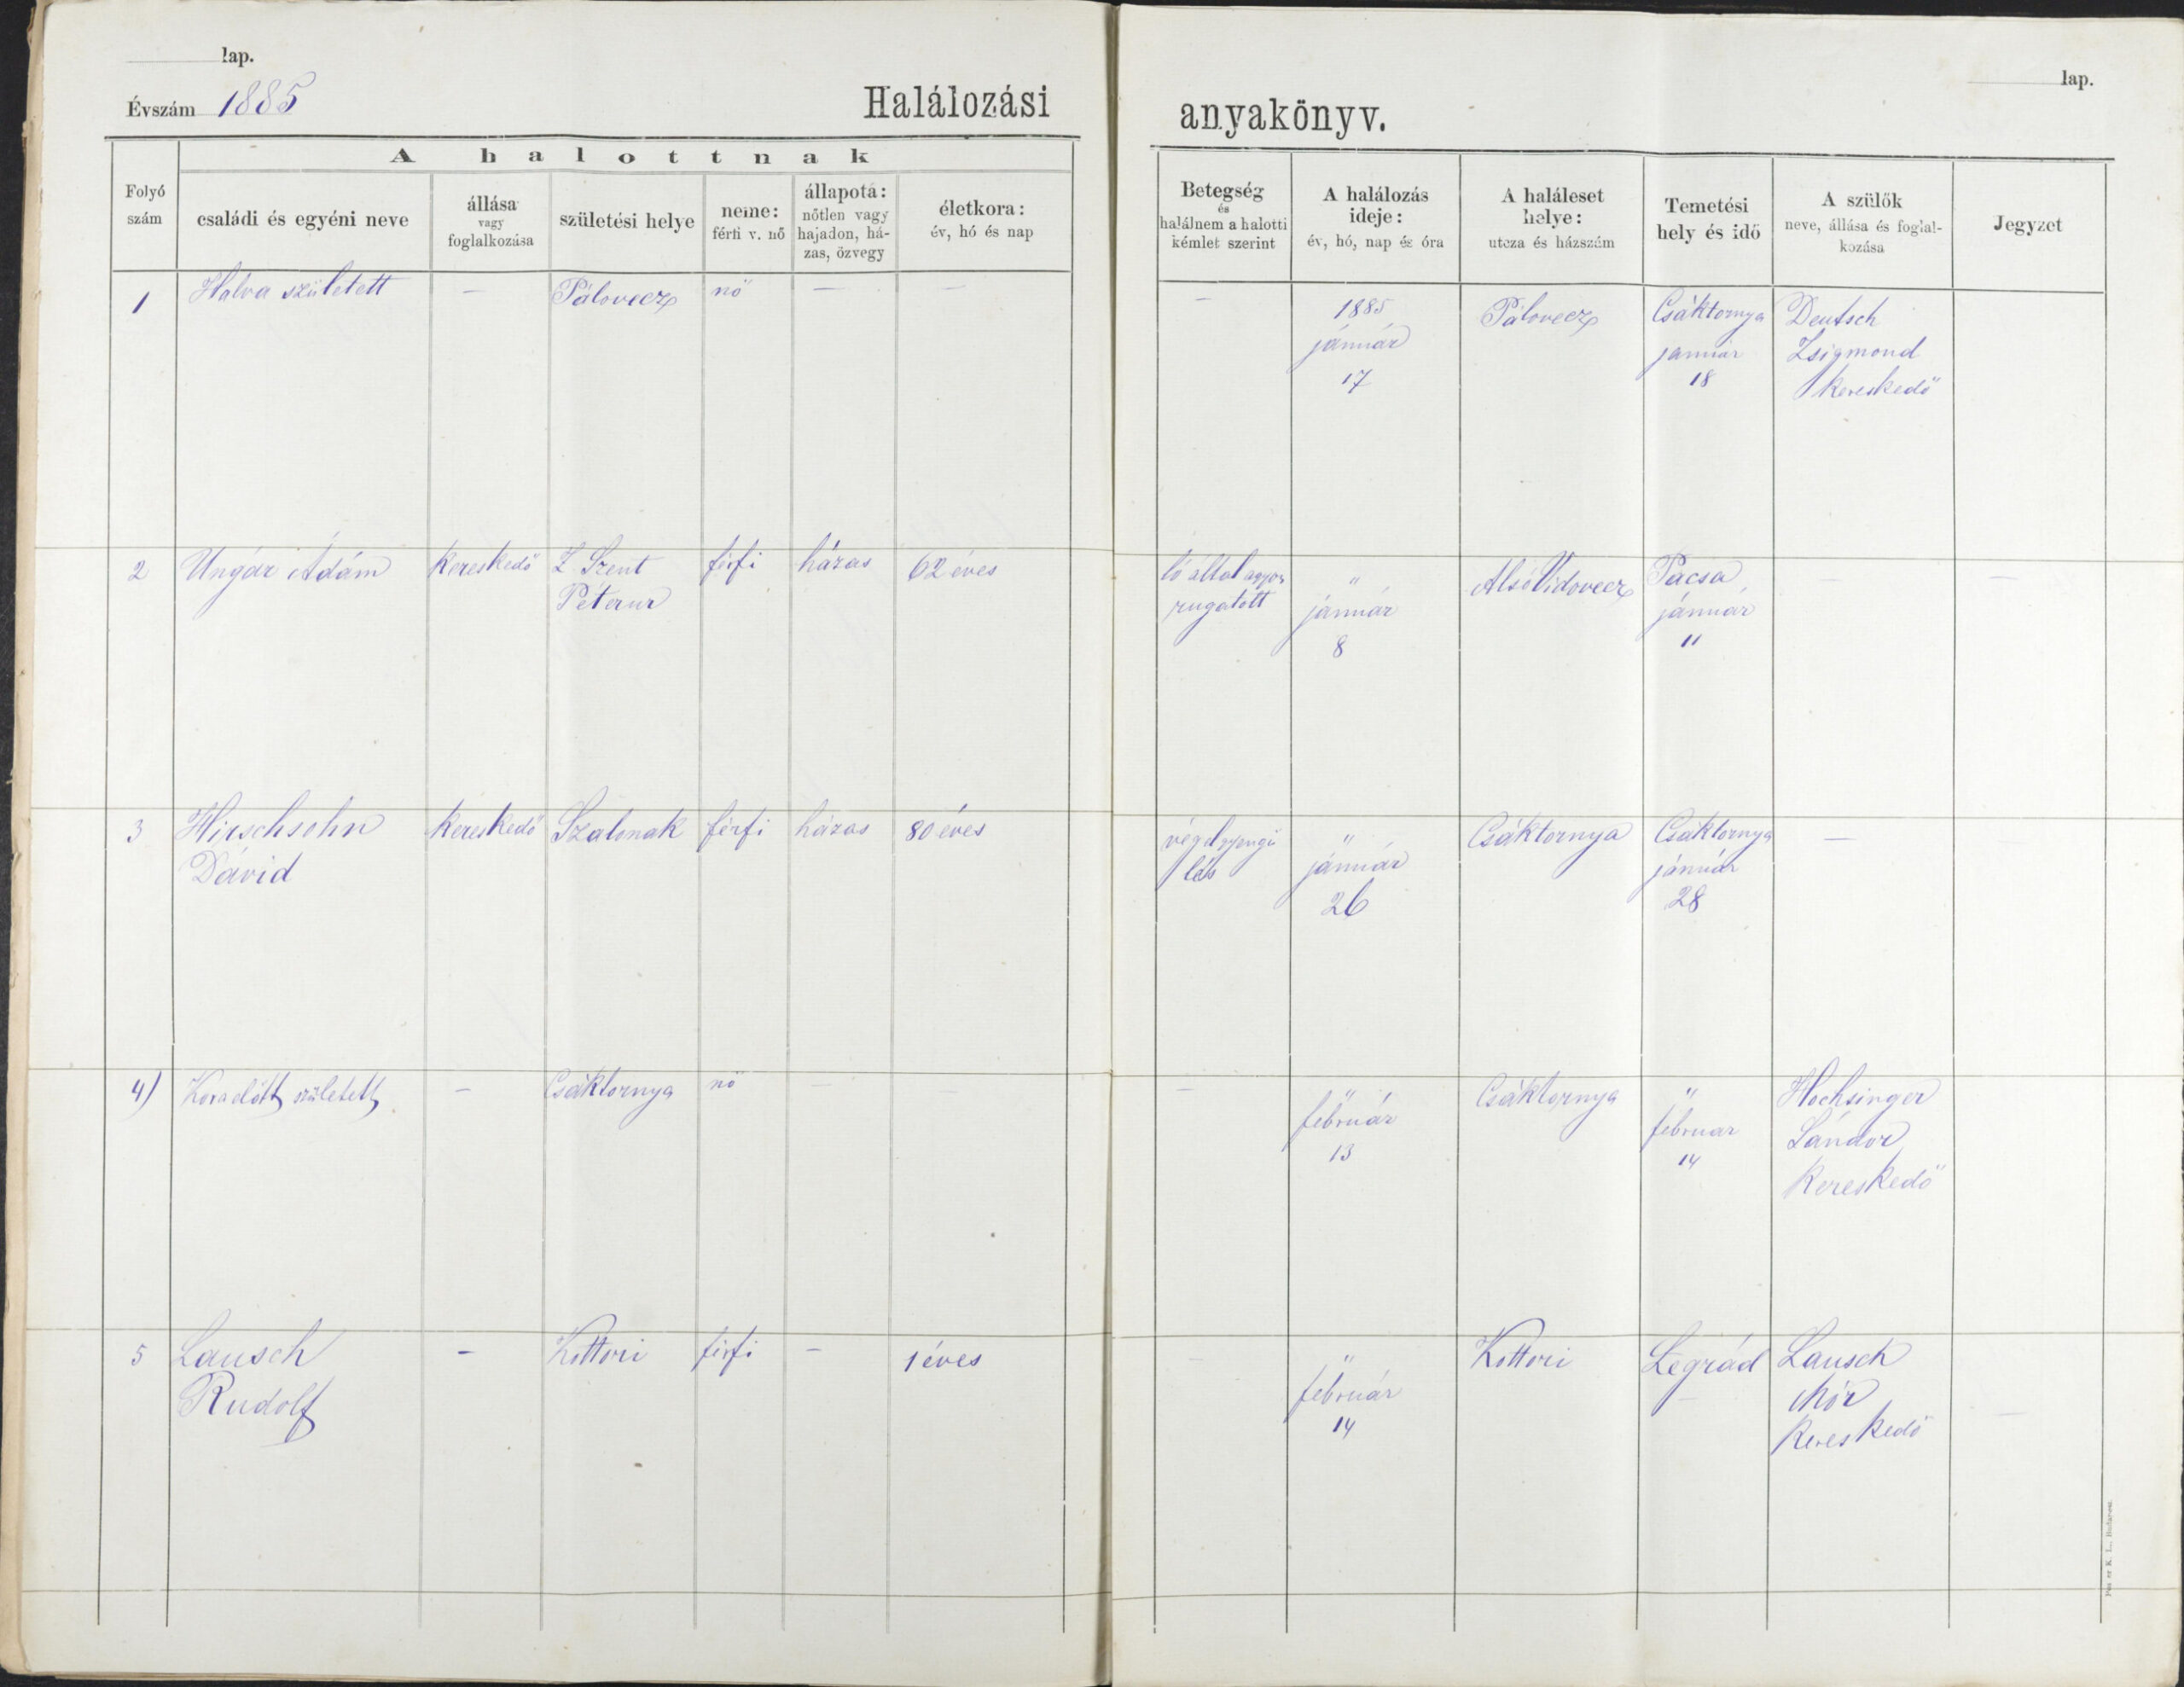 lap.
Évszám 1885
Halálozási
A halottnak
Folyó szám
családi és egyéni neve
állása vagy foglalkozása
születési helye
neme: férfi v. nő
állapota: nőtlen vagy hajadon, há-zas, özvegy
életkora: év, hó és nap
1 Halva született — Pálovecz nő — —
2 Ungár Ádám kereskedő Z Szent férfi házas 62 éves
Péterur
3 Hirschsohn kereskedő Szalonak férfi házas 80 éves
Dávid
4) Koraelőtt született — Csáktornya nő — —
5 Lausch — Kottori férfi — 1 éves
Rudolf
lap.
anyakönyv.
Betegség és halálnem a halotti kémlet szerint
A halálozás ideje: év, hó, nap és óra
A haláleset helye: utcza és házszám
Temetési hely és idő
A szülők neve, állása és foglal-kozása
Jegyzet
— 1885 Pálovecz Csáktornya Deutsch
január január Zsigmond
17 18 kereskedő
ló által agyon " Alsó Vidovecz Pacsa — —
rugatott január január
8 11
végelgyengü " Csáktornya Csáktornya —
lés január január
26 28
— " Csáktornya " Hochsinger
február februar Sándor
13 14 kereskedő
— " Kottori Legrád Lausch
február — Mór —
14 kereskedő